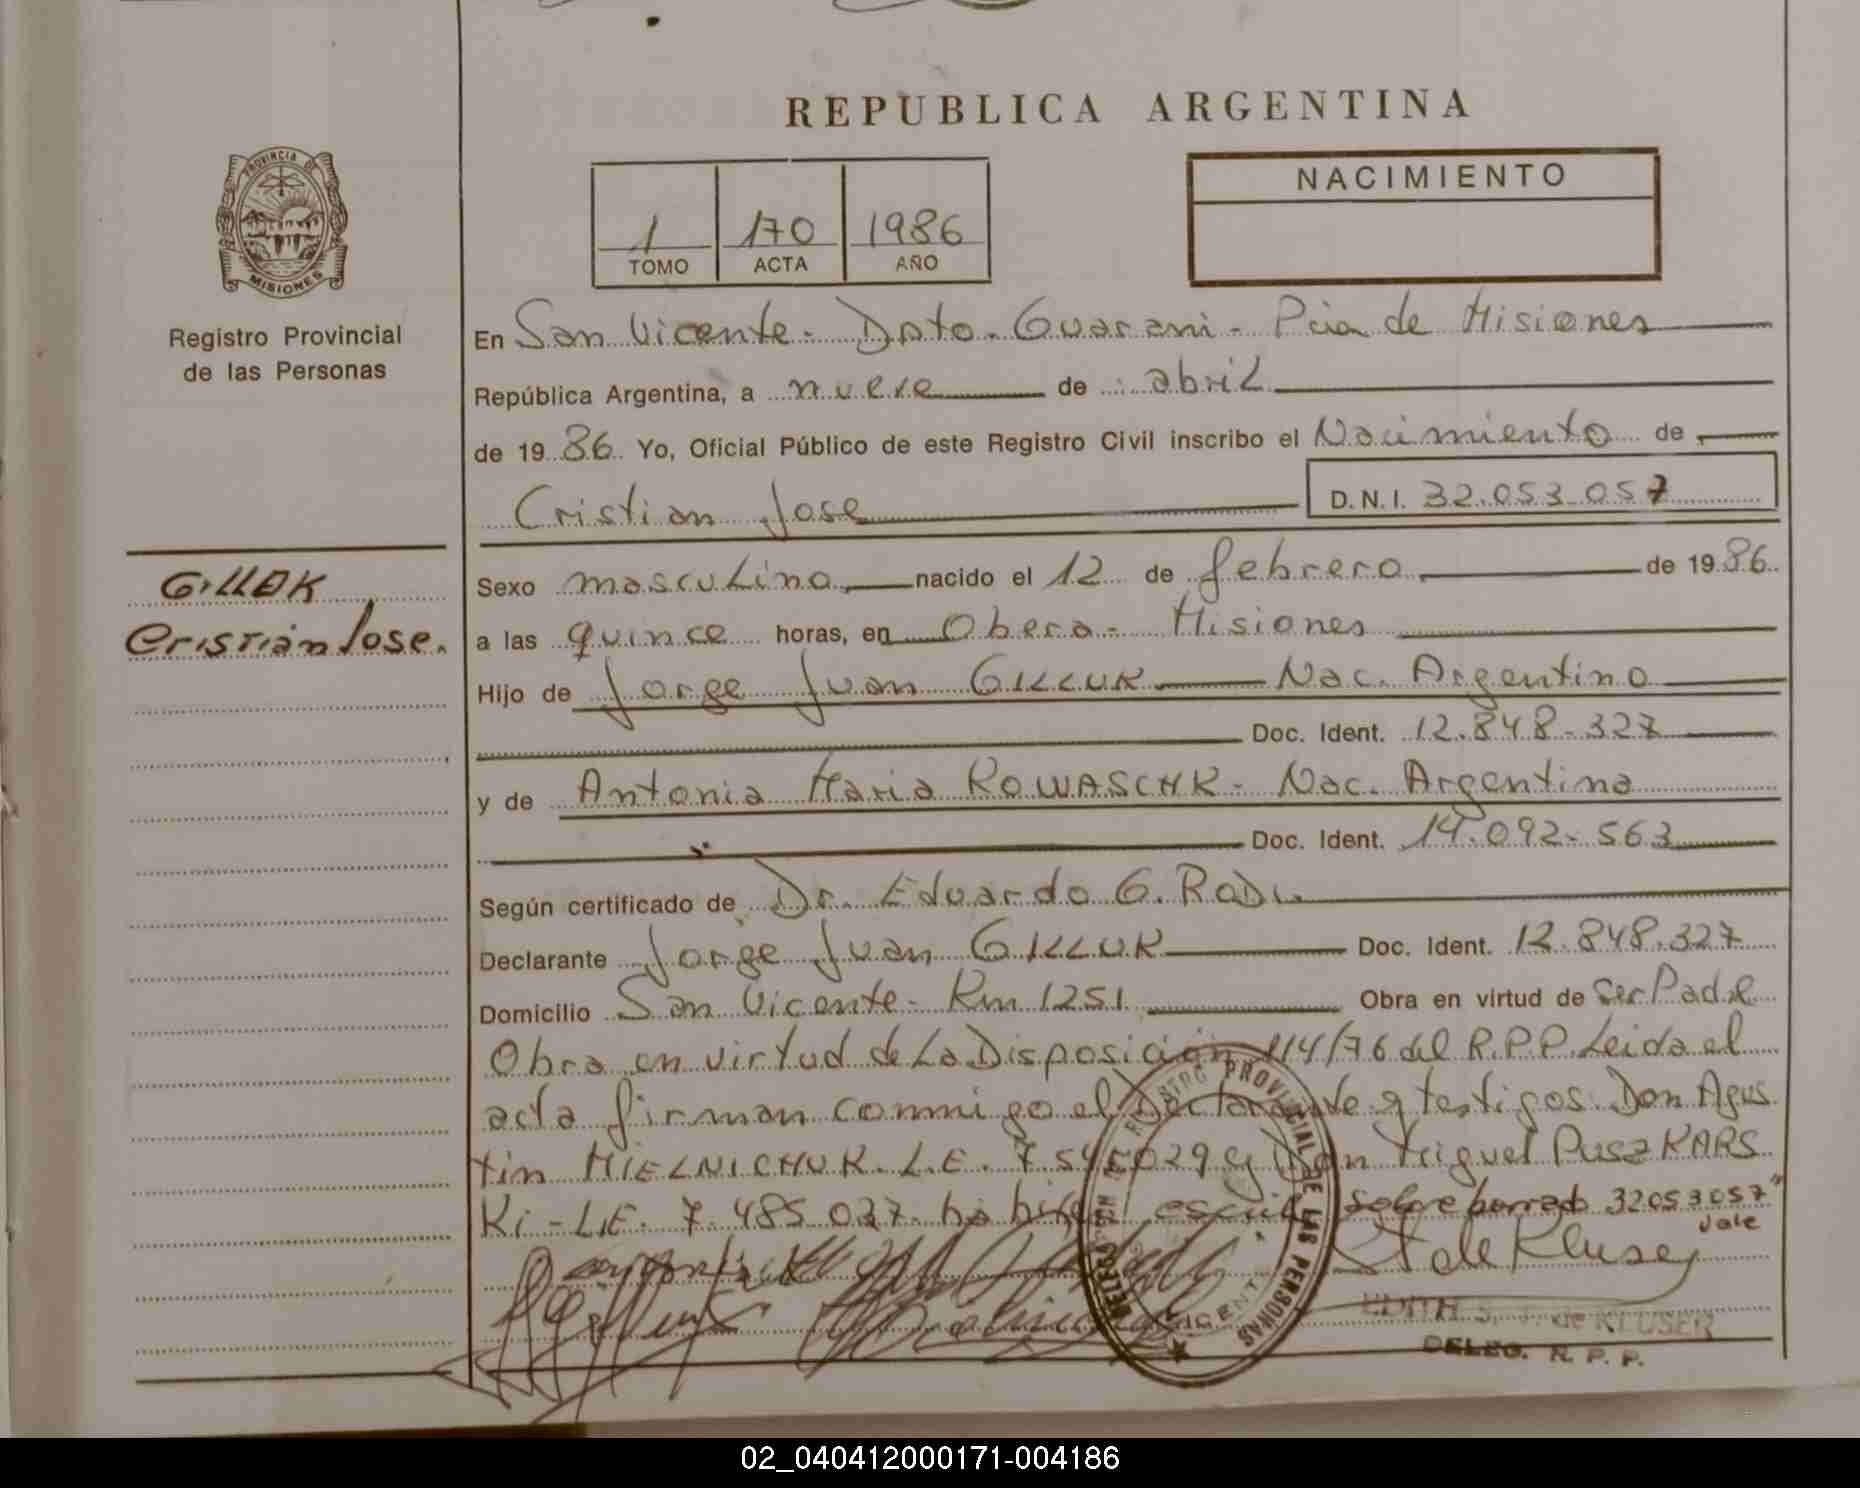 REPUBLICA ARGENTINA
PROVINCIA DE
MISIONES
Registro Provincial
de las Personas
1 170 1986
TOMO ACTA AÑO
NACIMIENTO
En San Vicente - Dpto. Guarani - Pcia de Misiones
República Argentina, a nueve de abril
de 19 86. Yo, Oficial Público de este Registro Civil inscribo el Nacimiento de
Cristian Jose D.N.I. 32.053.057
GILLUK
Cristian Jose.
Sexo masculino nacido el 12 de febrero de 19 86.
a las quince horas, en Obera - Misiones
Hijo de Jorge Juan GILLUK Nac. Argentino
Doc. Ident. 12.848-327
y de Antonia Maria KOWASCHK - Nac. Argentina
Doc. Ident. 14.092-563
Según certificado de Dr. Eduardo G. RODI
Declarante Jorge Juan GILLUK Doc. Ident. 12.848.327
Domicilio San Vicente - Km 1251 Obra en virtud de Ser Padre
Obra en virtud de La Disposición 114/76 del R.P.P Leida el
acta firman conmigo el Declarante y testigos. Don Agus
tin MIELNICHUK. L.E. 7.545029 y Don Miguel PuszKARS
Ki - L.E. 7.485.027. sobre borrado 32053057"
Vale
de Kluser
EDITH S. de KLUSER
DELEG. R. P. P.
PROVINCIAL DE LAS PERSONAS
02_040412000171-004186